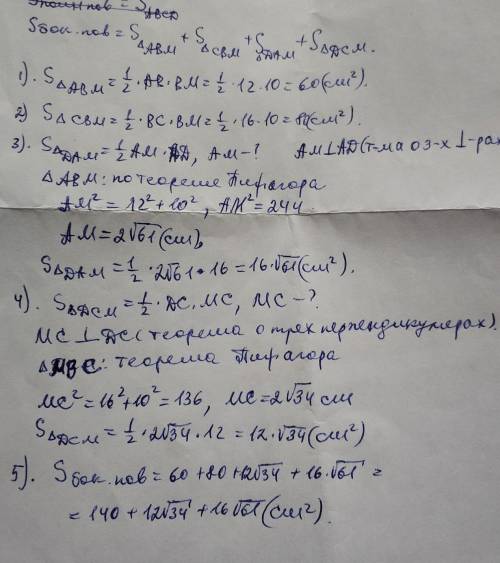 Sбок.пов = S△ABM + S△CBM + S△DAM + S△DCM.
1). S△ABM = 1/2 · AB · BM = 1/2 · 12 · 10 = 60 (cm²).
2) S△CBM = 1/2 · BC · BM = 1/2 · 16 · 10 = 80 (cm²).
3). S△DAM = 1/2 AM · AD, AM - ? AM ⊥ AD (т-ма о 3-х ⊥-рах
△ABM: по теореме Пифагора
AM² = 12² + 10², AM² = 244
AM = 2√61 (cm),
S△DAM = 1/2 · 2√61 · 16 = 16 · √61 (cm²).
4). S△DCM = 1/2 · DC · MC, MC - ?
MC ⊥ DC (теорема о трех перпендикулярах).
△MBC: теорема Пифагора
MC² = 16² + 10² = 136, MC = 2√34 cm
S△DCM = 1/2 · 2√34 · 12 = 12 · √34 (cm²)
5). Sбок.пов = 60 + 80 + 12√34 + 16 · √61 =
= 140 + 12√34 + 16√61 (cm²).